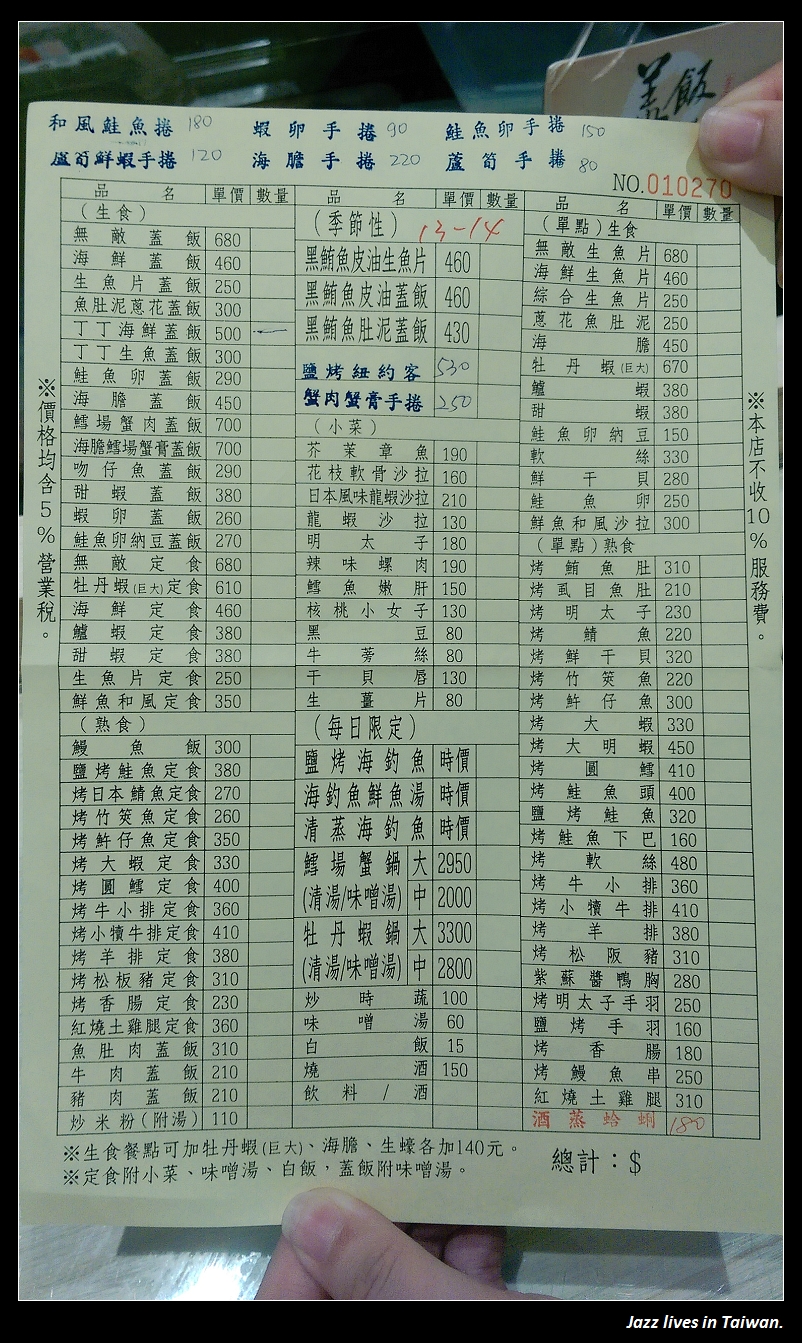 羊飯
和風鮭魚捲 180 蝦卵手捲 90 鮭魚卵手捲 150
蘆筍鮮蝦手捲 120 海膽手捲 220 蘆筍手捲 80
NO.010270
品名 單價 數量
(生食)
無敵蓋飯 680
海鮮蓋飯 460
生魚片蓋飯 250
魚肚泥蔥花蓋飯 300
丁丁海鮮蓋飯 500
丁丁生魚蓋飯 300
鮭魚卵蓋飯 290
海膽蓋飯 450
鱈場蟹肉蓋飯 700
海膽鱈場蟹膏蓋飯 700
吻仔魚蓋飯 290
甜蝦蓋飯 380
蝦卵蓋飯 260
鮭魚卵納豆蓋飯 270
無敵定食 680
牡丹蝦(巨大)定食 610
海鮮定食 460
鱸蝦定食 380
甜蝦定食 380
生魚片定食 250
鮮魚和風定食 350
(熟食)
鰻魚飯 300
鹽烤鮭魚定食 380
烤日本鯖魚定食 270
烤竹筴魚定食 260
烤魽仔魚定食 350
烤大蝦定食 330
烤圓鱈定食 400
烤牛小排定食 360
烤小犢牛排定食 410
烤羊排定食 380
烤松板豬定食 310
烤香腸定食 230
紅燒土雞腿定食 360
魚肚肉蓋飯 310
牛肉蓋飯 210
豬肉蓋飯 210
炒米粉(附湯) 110
品名 單價 數量
(季節性) 13-14
黑鮪魚皮油生魚片 460
黑鮪魚皮油蓋飯 460
黑鮪魚肚泥蓋飯 430
鹽烤紐約客 530
蟹肉蟹膏手捲 250
(小菜)
芥茉章魚 190
花枝軟骨沙拉 160
日本風味龍蝦沙拉 210
龍蝦沙拉 130
明太子 180
辣味螺肉 190
鱈魚嫩肝 150
核桃小女子 130
黑豆 80
牛蒡絲 80
干貝唇 130
生薑片 80
(每日限定)
鹽烤海釣魚 時價
海釣魚鮮魚湯 時價
清蒸海釣魚 時價
鱈場蟹鍋 大 2950
(清湯/味噌湯) 中 2000
牡丹蝦鍋 大 3300
(清湯/味噌湯) 中 2800
炒時蔬 100
味噌湯 60
白飯 15
燒酒 150
飲料/酒
品名 單價 數量
(單點)生食
無敵生魚片 680
海鮮生魚片 460
綜合生魚片 250
蔥花魚肚泥 250
海膽 450
牡丹蝦(巨大) 670
鱸蝦 380
甜蝦 380
鮭魚卵納豆 150
軟絲 330
鮮干貝 280
鮭魚卵 250
鮮魚和風沙拉 300
(單點)熟食
烤鮪魚肚 310
烤虱目魚肚 210
烤明太子 230
烤鯖魚 220
烤鮮干貝 320
烤竹筴魚 220
烤魽仔魚 300
烤大蝦 330
烤大明蝦 450
烤圓鱈 410
烤鮭魚頭 400
鹽烤鮭魚 320
烤鮭魚下巴 160
烤軟絲 480
烤牛小排 360
烤小犢牛排 410
烤羊排 380
烤松阪豬 310
紫蘇醬鴨胸 280
烤明太子手羽 250
鹽烤手羽 160
烤香腸 180
烤鰻魚串 250
紅燒土雞腿 310
酒蒸蛤蜊 180
※價格均含5%營業稅。
※本店不收10%服務費。
※生食餐點可加牡丹蝦(巨大)、海膽、生蠔各加140元。
※定食附小菜、味噌湯、白飯，蓋飯附味噌湯。
總計：$
Jazz lives in Taiwan.